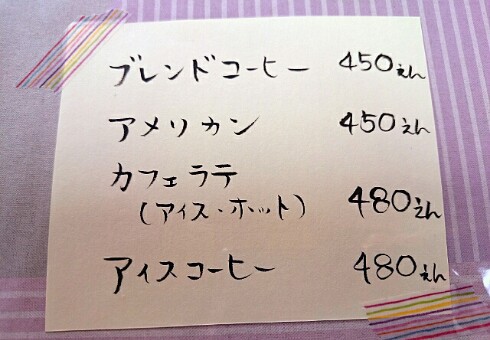 ブレンドコーヒー 450えん
アメリカン 450えん
カフェラテ
(アイス・ホット) 480えん
アイスコーヒー 480えん